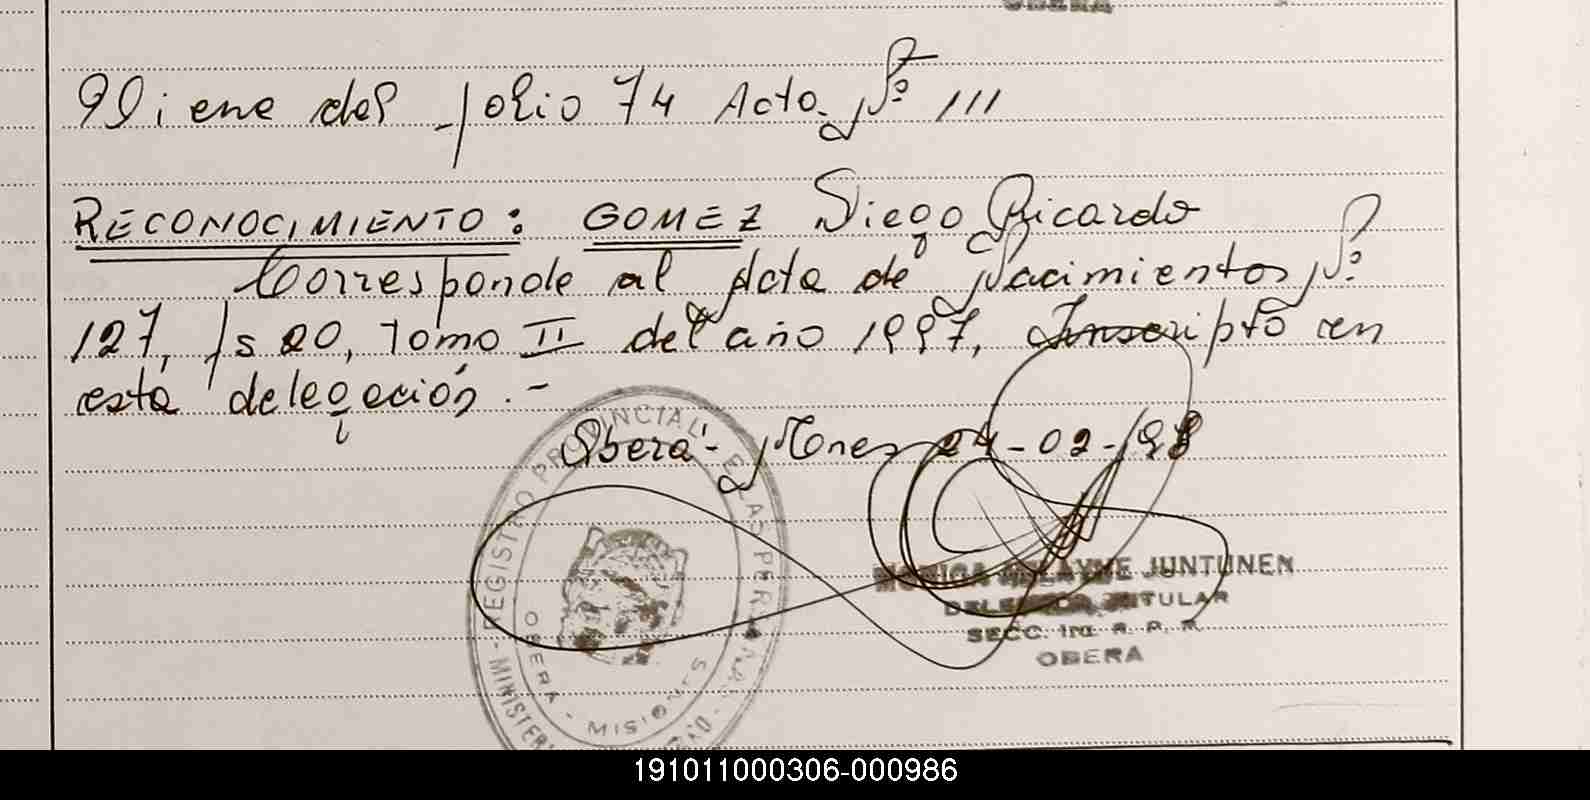 OBERA
Viene del folio 74 Acta Nº 111
RECONOCIMIENTO: GOMEZ Diego Ricardo
Corresponde al Acta de Nacimientos Nº
127, fs 20, Tomo II del año 1997, Inscripto en
esta delegación.-
Oberá - Mnes 24-02-98
REGISTRO PROVINCIAL DE LAS PERSONAS
MINISTER
OBERA - MISIONES
JUNTUNEN
TITULAR
SECC. 1ra. R. P. P.
OBERA
191011000306-000986